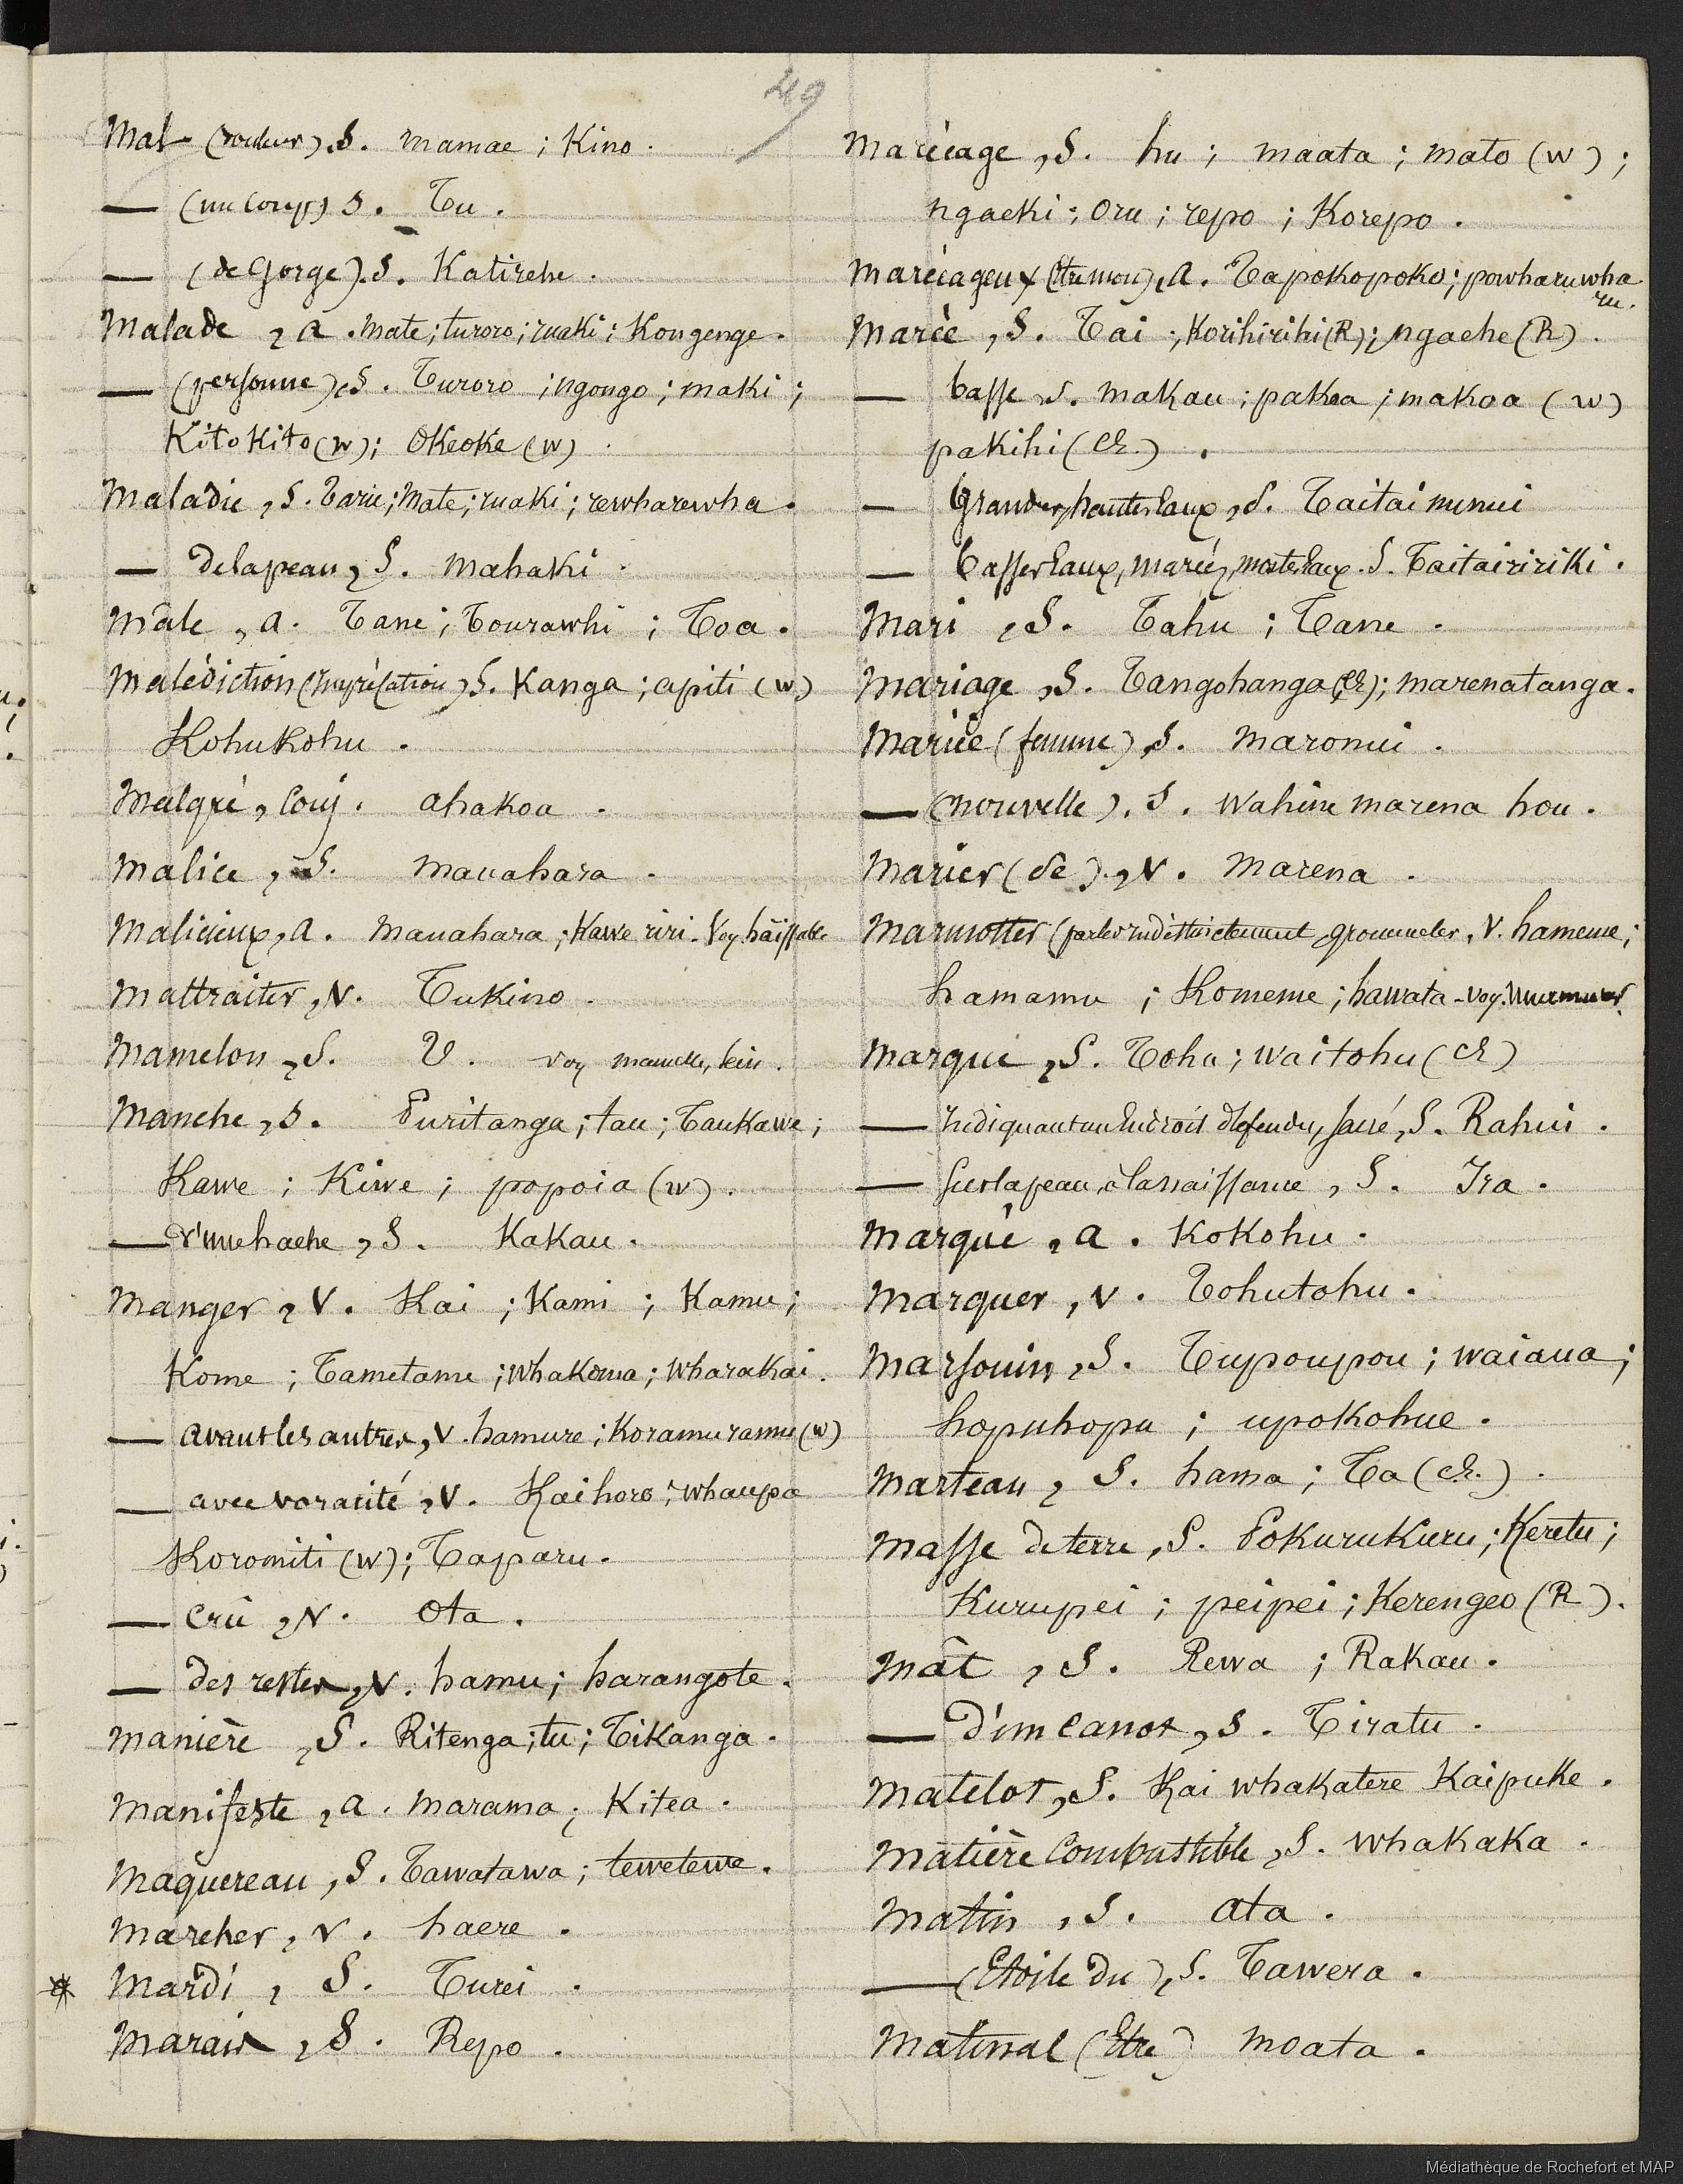 49
Mal (douleur), S. mamae ; Kino.
— (un coup) S. Tu.
— (de Gorge). S. Katirehe.
Malade, a. mate ; turoro ; ruaki ; Kongenge.
— (personne), S. Turoro ; ngongo ; maki ;
Kitokito (w) ; Okeoke (w).
Maladie, S. Tarie ; Mate ; ruaki ; rewharewha.
— de la peau, S. mahaki.
Mâle, a. Tane ; Tourawhi ; Toa.
Malédiction (Imprécation), S. Kanga ; apiti (w)
Kohukohu.
Malgré, Conj. ahakoa.
Malice, S. mauahara.
Malicieux, a. mauahara ; Kawe riri. Voy. haïssable
Maltraiter, V. Tukino.
Mamelon, S. U. voy mamelle, sein.
Manche, S. Puritanga ; tau ; Taukawe ;
Kawe ; Kiwe ; popoia (w).
— d'une hache, S. Kakau.
Manger, V. Kai ; Kami ; Kamu ;
Kome ; Tametame ; whakoma ; wharakai.
— avant les autres, V. hamure ; Koramuramu (w)
— avec voracité, V. Kaihoro ; whaupa
Koromiti (w) ; Taparu.
— Crû, V. Ota.
— des restes, V. hamu ; harangote.
Manière, S. Ritenga ; tu ; Tikanga.
Manifeste, a. marama ; Kitea.
Maquereau, S. Tawatawa ; tewetewe.
Marcher, V. haere.
Mardi, S. Turei.
Marais, S. Repo.
Marécage, S. hu ; maata ; mato (w) ;
ngaeki ; Oru ; repo ; Korepo.
Marécageux (être mou), a. Tapokopoko ; powharuwha
ru.
Marée, S. Tai ; Korihirihi (R) ; ngaehe (R).
— basse S. makau ; pakoa ; makoa (w)
pakihi (Ch.).
— Grandes, hautes Eaux, S. Taitai nunui
— Basses Eaux, marées, mortes Eaux. S. Taitairiki.
Mari, S. Tahu ; Tane.
Mariage, S. Tangohanga (Ch) ; marenatanga.
Mariée (femme), S. maronui.
— (nouvelle). S. wahine marena hou.
Marier (Se)., V. marena.
Marmotter (parler indistinctement, grommeler, V. hameme ;
hamamu ; Komeme ; hawata - Voy. Murmurer.
Marque, S. Tohu ; waitohu (Ch)
— Indiquant un Endroit défendu, sacré, S. Rahui.
— Sur la peau, à la naissance, S. Ira.
Marqué, a. Kokohu.
Marquer, V. Tohutohu.
Marsouin, S. Tupoupou ; waiaua ;
hopuhopu ; upokohue.
Marteau, S. hama ; Ta (Ch.).
Masse de terre, S. Pokurukuru ; Keretu ;
Kurupei ; peipei ; Kerengeo (R).
Mât, S. Rewa ; Rakau.
— d'un Canot, S. Tiratu.
Matelot, S. Kai whakatere Kaipuke.
Matière Combustible, S. whakaka.
Matin, S. ata.
— (Etoile du), S. Tawera.
Matinal (Etre) moata.
Médiathèque de Rochefort et MAP